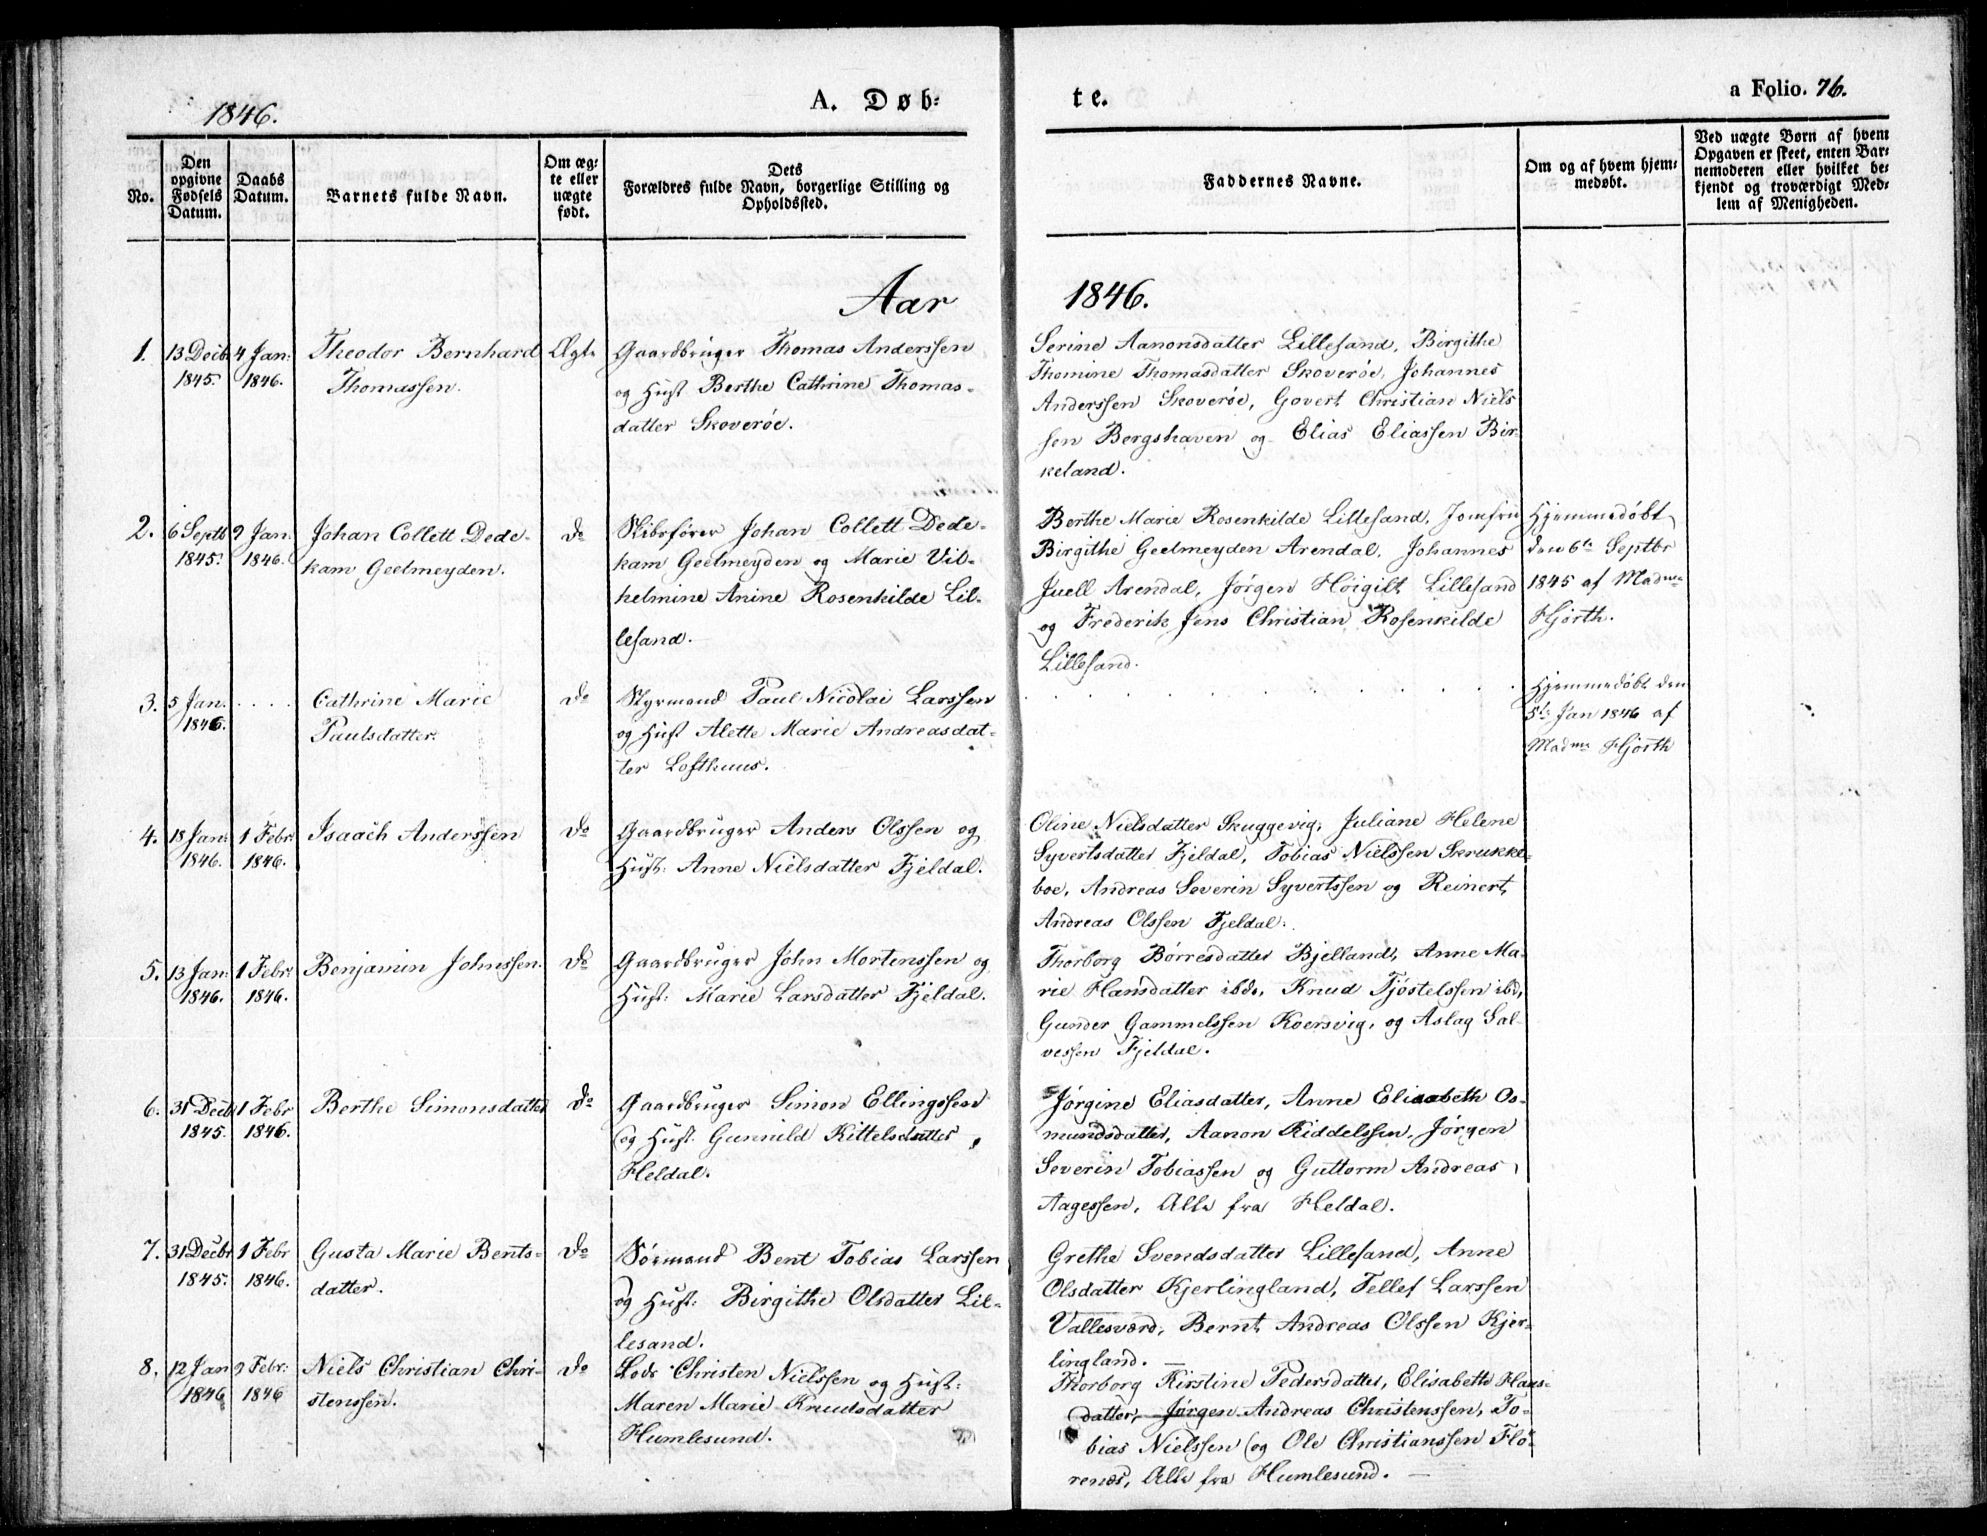 1846. A. Døb-
te. a Folio. 76.
No. Den opgivne Fødsels Datum. Daabs Datum. Barnets fulde Navn. Om ægte eller uægte født. Dets Forældres fulde Navn, borgerlige Stilling og Opholdssted. Faddernes Navne. Om og af hvem hjemmedøbt. Ved uægte Børn af hvem Opgaven er skeet, enten Barnemoderen eller hvilket bekjendt og troværdigt Medlem af Menigheden.
Aar 1846.
1. 13 Decb: 4 Jan: Theodor Bernhard Ægte Gaardbruger Thomas Anderssen
1845. 1846. Thomassen. og Hust Berthe Cathrine Thomas-
datter Skoverøe.
Serine Aanonsdatter Lillesand, Birgithe
Thomine Thomasdatter Skoverøe, Johannes
Anderssen Skoverøe, Govert Christian Niels
sen Bergshaven og Elias Eliassen Bir-
keland.
2. 6 Septb 9 Jan: Johan Collett Dede- do Skibsfører Johan Collett Dede-
1845. 1846. kam Geelmeyden. kam Geelmeyden og Marie Vil-
helmine Anine Rosenkilde Lil-
lesand.
Berthe Marie Rosenkilde Lillesand, Jomfru
Birgithe Geelmeyden Arendal, Johannes
Juell Arendal, Jørgen Høigilt Lillesand
og Frederik Jens Christian Rosenkilde
Lillesand.
Hjemmedøbt
den 6te Septbr
1845 af Madme
Hjorth.
3. 5 Jan. . . . . Cathrine Marie do Styrmand Paul Nicolai Larssen
1846. Paulsdatter. og Hust Alette Marie Andreasdat-
ter Lofthuus.
Hjemmedøbt den
5te Jan 1846 af
Madme Hjorth
4. 18 Jan: 1 Febr: Isaach Anderssen do Gaardbruger Anders Olssen og
1846. 1846. Hust: Anne Nielsdatter Fjeldal.
Oline Nielsdatter Skuggevig, Juliane Helene
Syvertsdatter Fjeldal, Tobias Nielssen Skrukke-
boe, Andreas Severin Syvertssen og Reinert
Andreas Olssen Fjeldal.
5. 13 Jan: 1 Febr: Benjamin Johnssen. do Gaardbruger John Mortenssen og
1846. 1846. Hust: Marie Larsdatter Fjeldal.
Thorborg Børresdatter Bjelland, Anne Ma-
rie Hansdatter ibd., Knud Tjøstelssen ibd,
Gunder Gammelssen Koersvig, og Aslag Sal-
vessen Fjeldal.
6. 31 Decb 1 Febr Berthe Simonsdatter do Gaardbruger Simon Ellingssen
1845. 1846. og Hust: Gunnild Kittelsdatter
Heldal.
Jørgine Eliasdatter, Anne Elisabeth Os-
mundsdatter, Aanon Riddelssen, Jørgen
Severin Tobiassen og Guttorm Andreas
Aagessen, Alle fra Heldal.
7. 31 Decbr 1 Febr Gusta Marie Bents- do Sørmand Bent Tobias Larssen
1845. 1846. datter. og Hust: Birgithe Olsdatter Lil-
lesand.
Grethe Svendsdatter Lillesand, Anne
Olsdatter Kjerlingland, Tellef Larssen
Vallesværd, Bernt Andreas Olssen Kjer-
lingland.
8. 12 Jan 9 Febr: Niels Christian Chri- do Lods Christen Nielssen og Hust:
1846 1846 stenssen. Maren Marie Knudsdatter
Humlesund.
Thorborg Kirstine Pedersdatter, Elisabeth Hans-
datter, Jørgen Andreas Christenssen, To-
bias Nielssen og Ole Christianssen Flø-
renæs, Alle fra Humlesund.